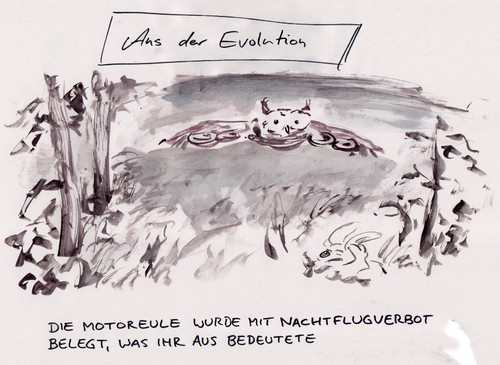 Aus der Evolution
DIE MOTOREULE WURDE MIT NACHTFLUGVERBOT
BELEGT, WAS IHR AUS BEDEUTETE